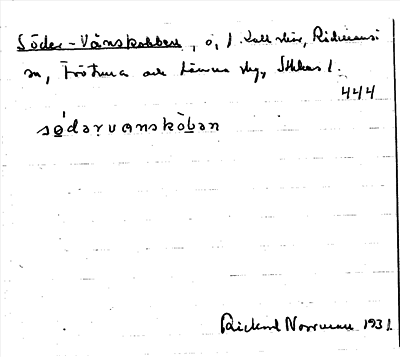 Söder-Vånskobben, ö, i Kallskär, Rådmansö
sn, Frötuna och Länna skg, Sthlms l.
444
sǿdərvånskòbən
Rickard Norrman 1931